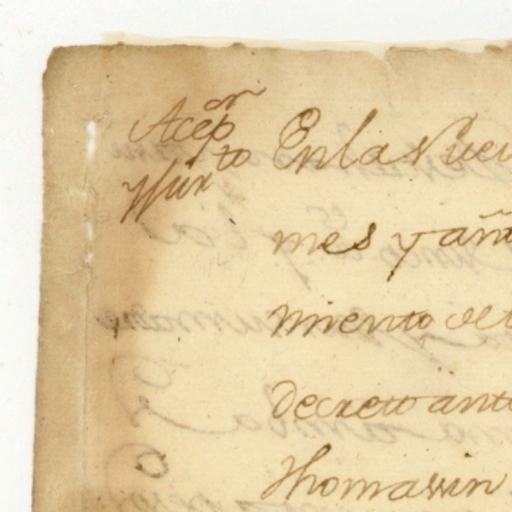 Acep^on
Jur^to
En la Nuev
mes y añ
miento, de
decreto ant
Thomassin